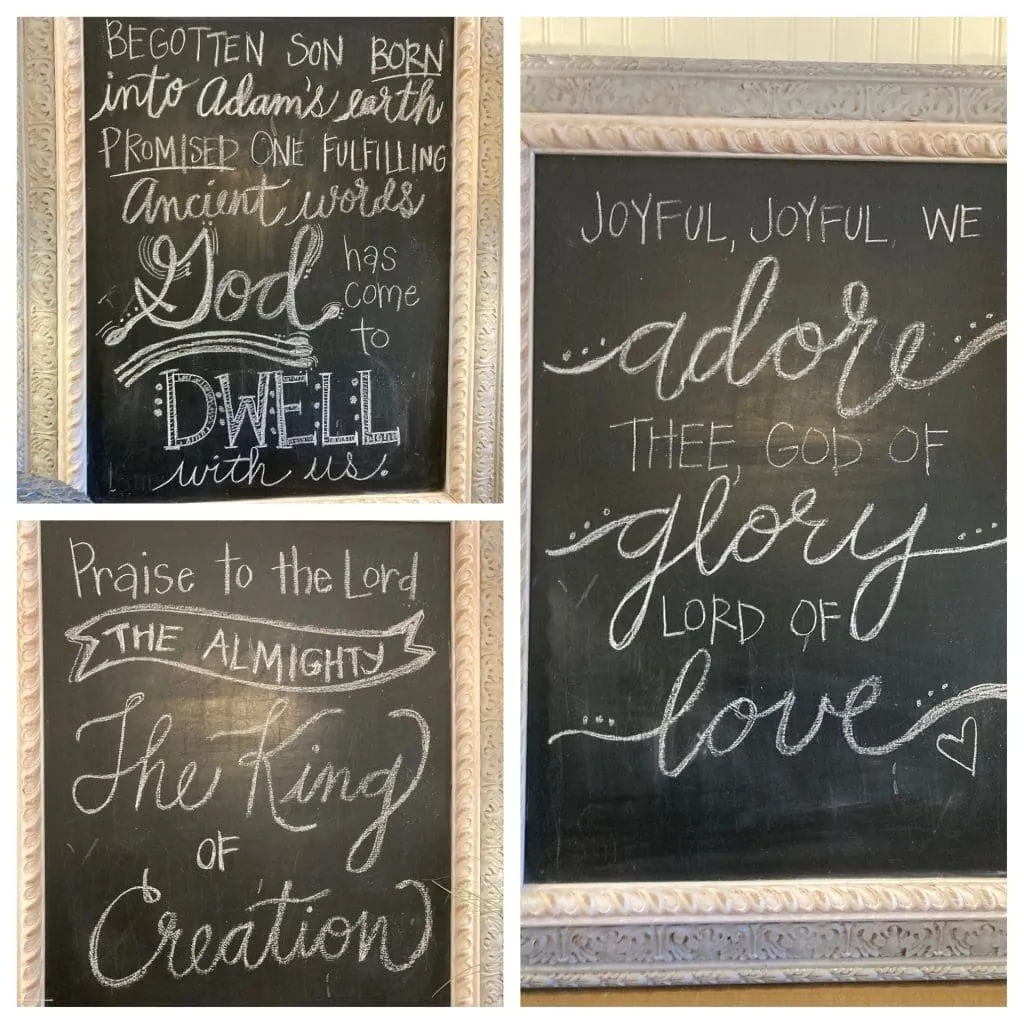 BEGOTTEN SON BORN
into Adam's earth
PROMISED ONE FULFILLING
Ancient words
God has
come
to
DWELL
with us.
Praise to the Lord
THE ALMIGHTY
The King
OF
Creation
JOYFUL, JOYFUL, WE
adore
THEE, GOD OF
glory
LORD OF
love